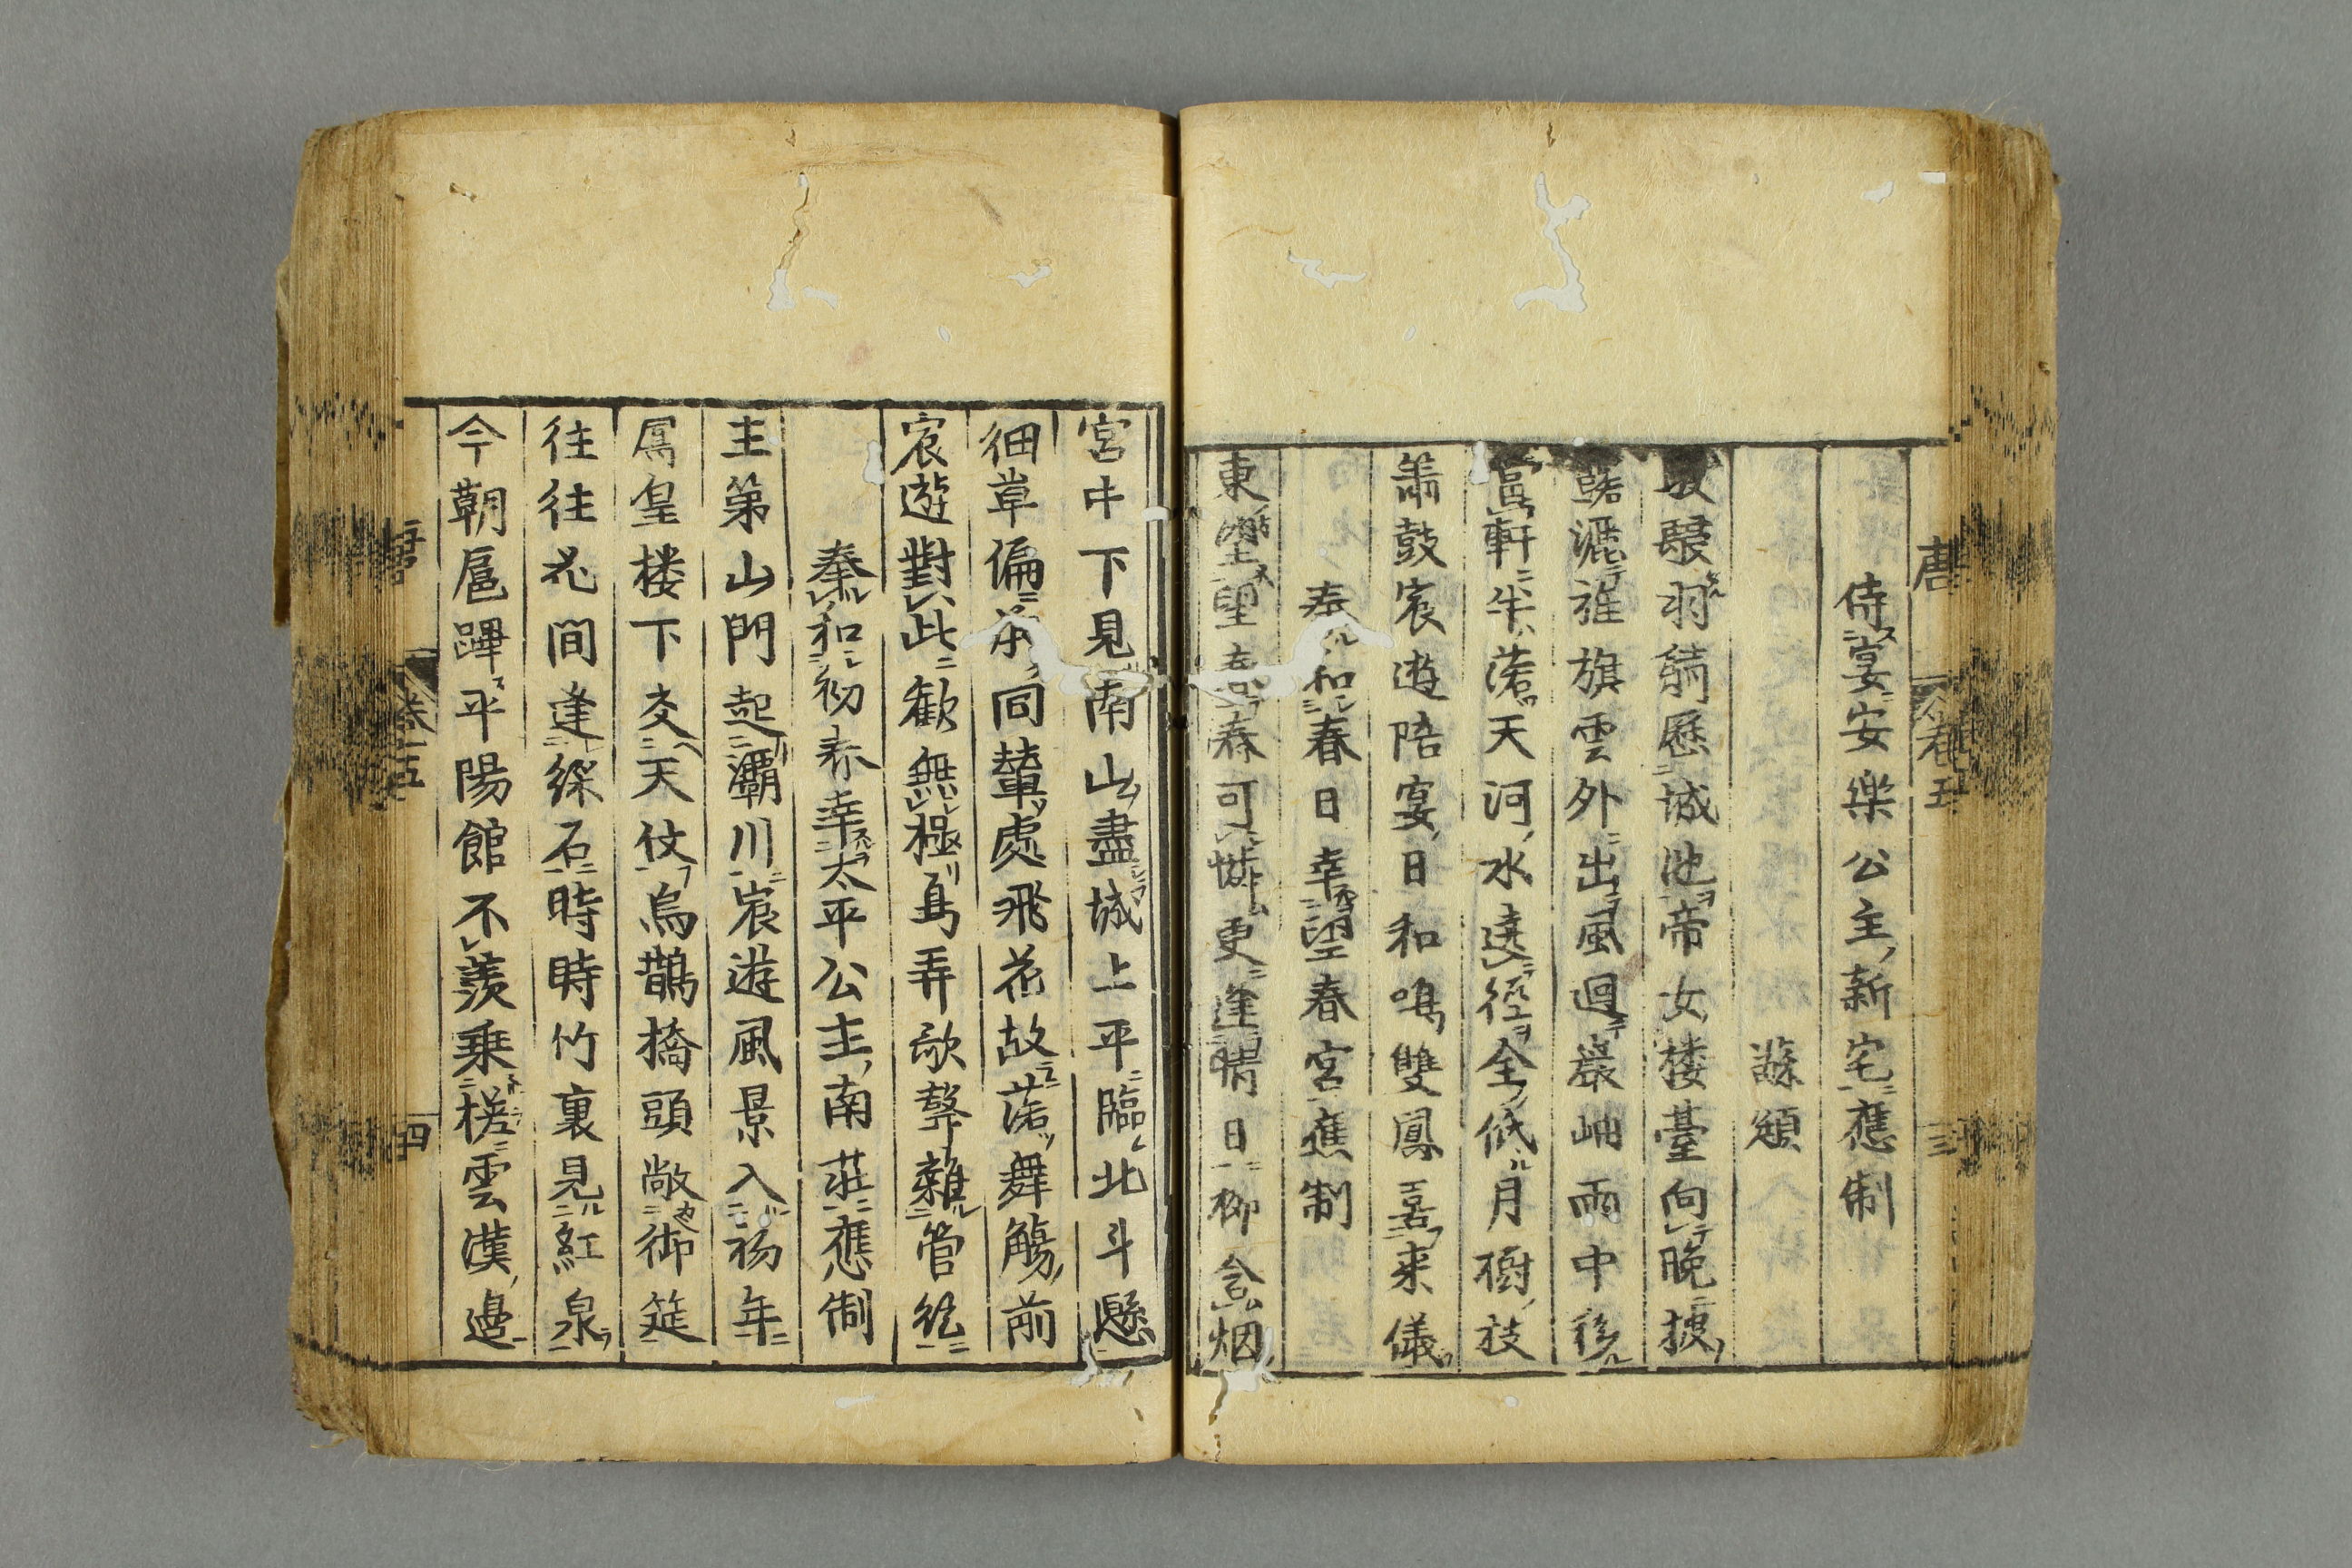 唐 卷五 三
侍宴安楽公主新宅應制
蘓頲
駸駸羽騎歴城池帝女楼臺向晩披
霧灑旌旗雲外出風迴巖岫雨中移
當軒半落天河水遶徑全低月樹枝
簫鼓宸遊陪宴日和鳴雙鳳喜来儀
奉和春日幸望春宮應制
東望望春春可憐更逢晴日柳含烟
宮中下見南山盡城上平臨北斗懸
細草偏承同輦處飛花故落舞觴前
宸遊對此歓無極鳥弄歌聲雜管絃
奉和初春幸太平公主南荘應制
主第山門起灞川宸遊風景入初年
鳳皇楼下交天仗烏鵲橋頭敞御筵
往往花間逢綵石時時竹裏見紅泉
今朝扈蹕平陽館不羨乗槎雲漢邉
唐 卷五 四